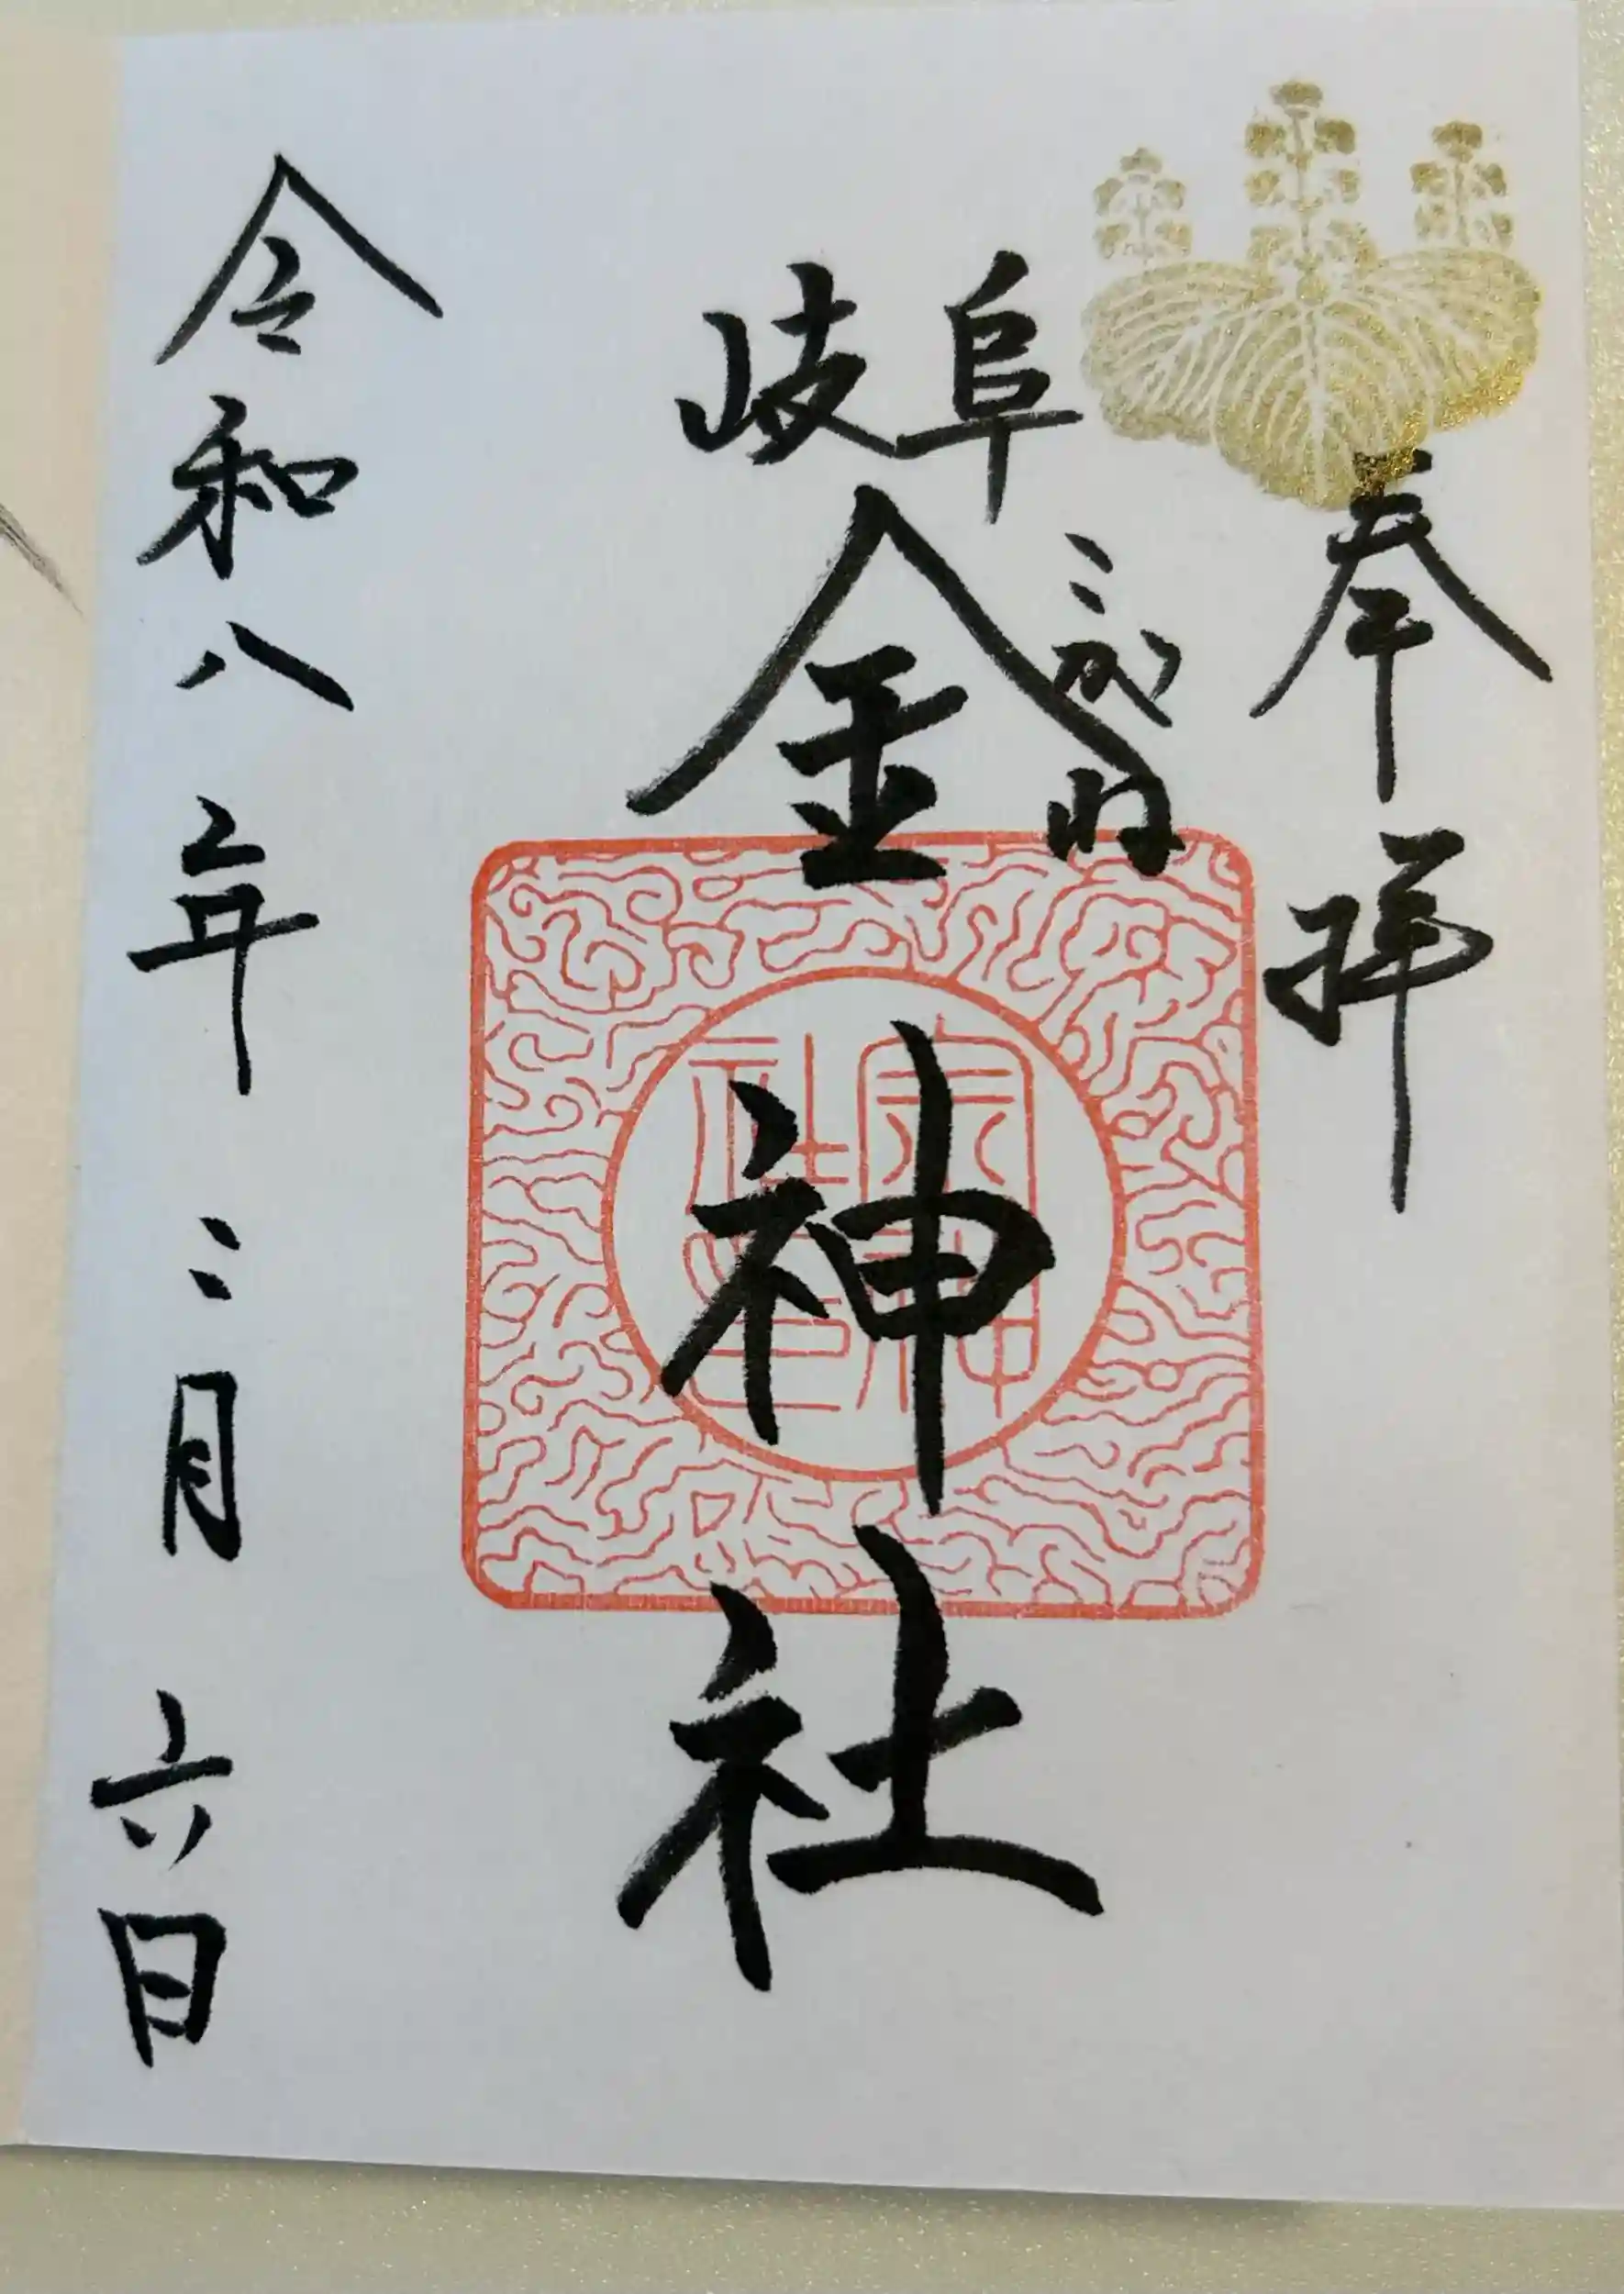 奉拝
岐阜
こがね
金神社
金神社印
令和八年二月六日